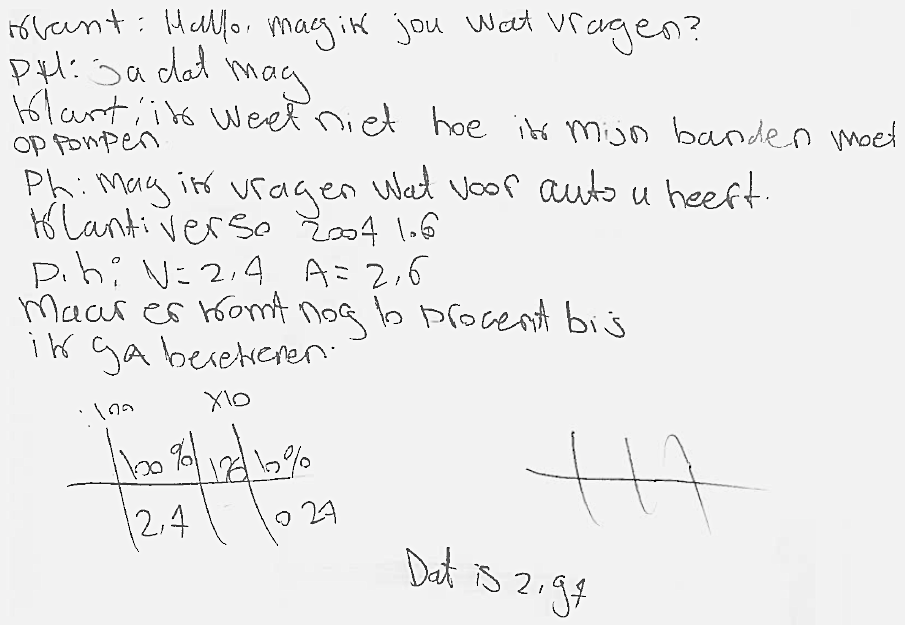 klant: Hallo, mag ik jou wat vragen?
P.H: Ja dat mag
klant: ik weet niet hoe ik mijn banden moet
op pompen
Ph: Mag ik vragen wat voor auto u heeft.
klant: verso 2004 1.6
P.h: V=2,4 A=2,6
Maar er komt nog 10 procent bij
ik ga berekenen.
:100 X10
100% 1% 10%
2,4 0 24
Dat is 2,94